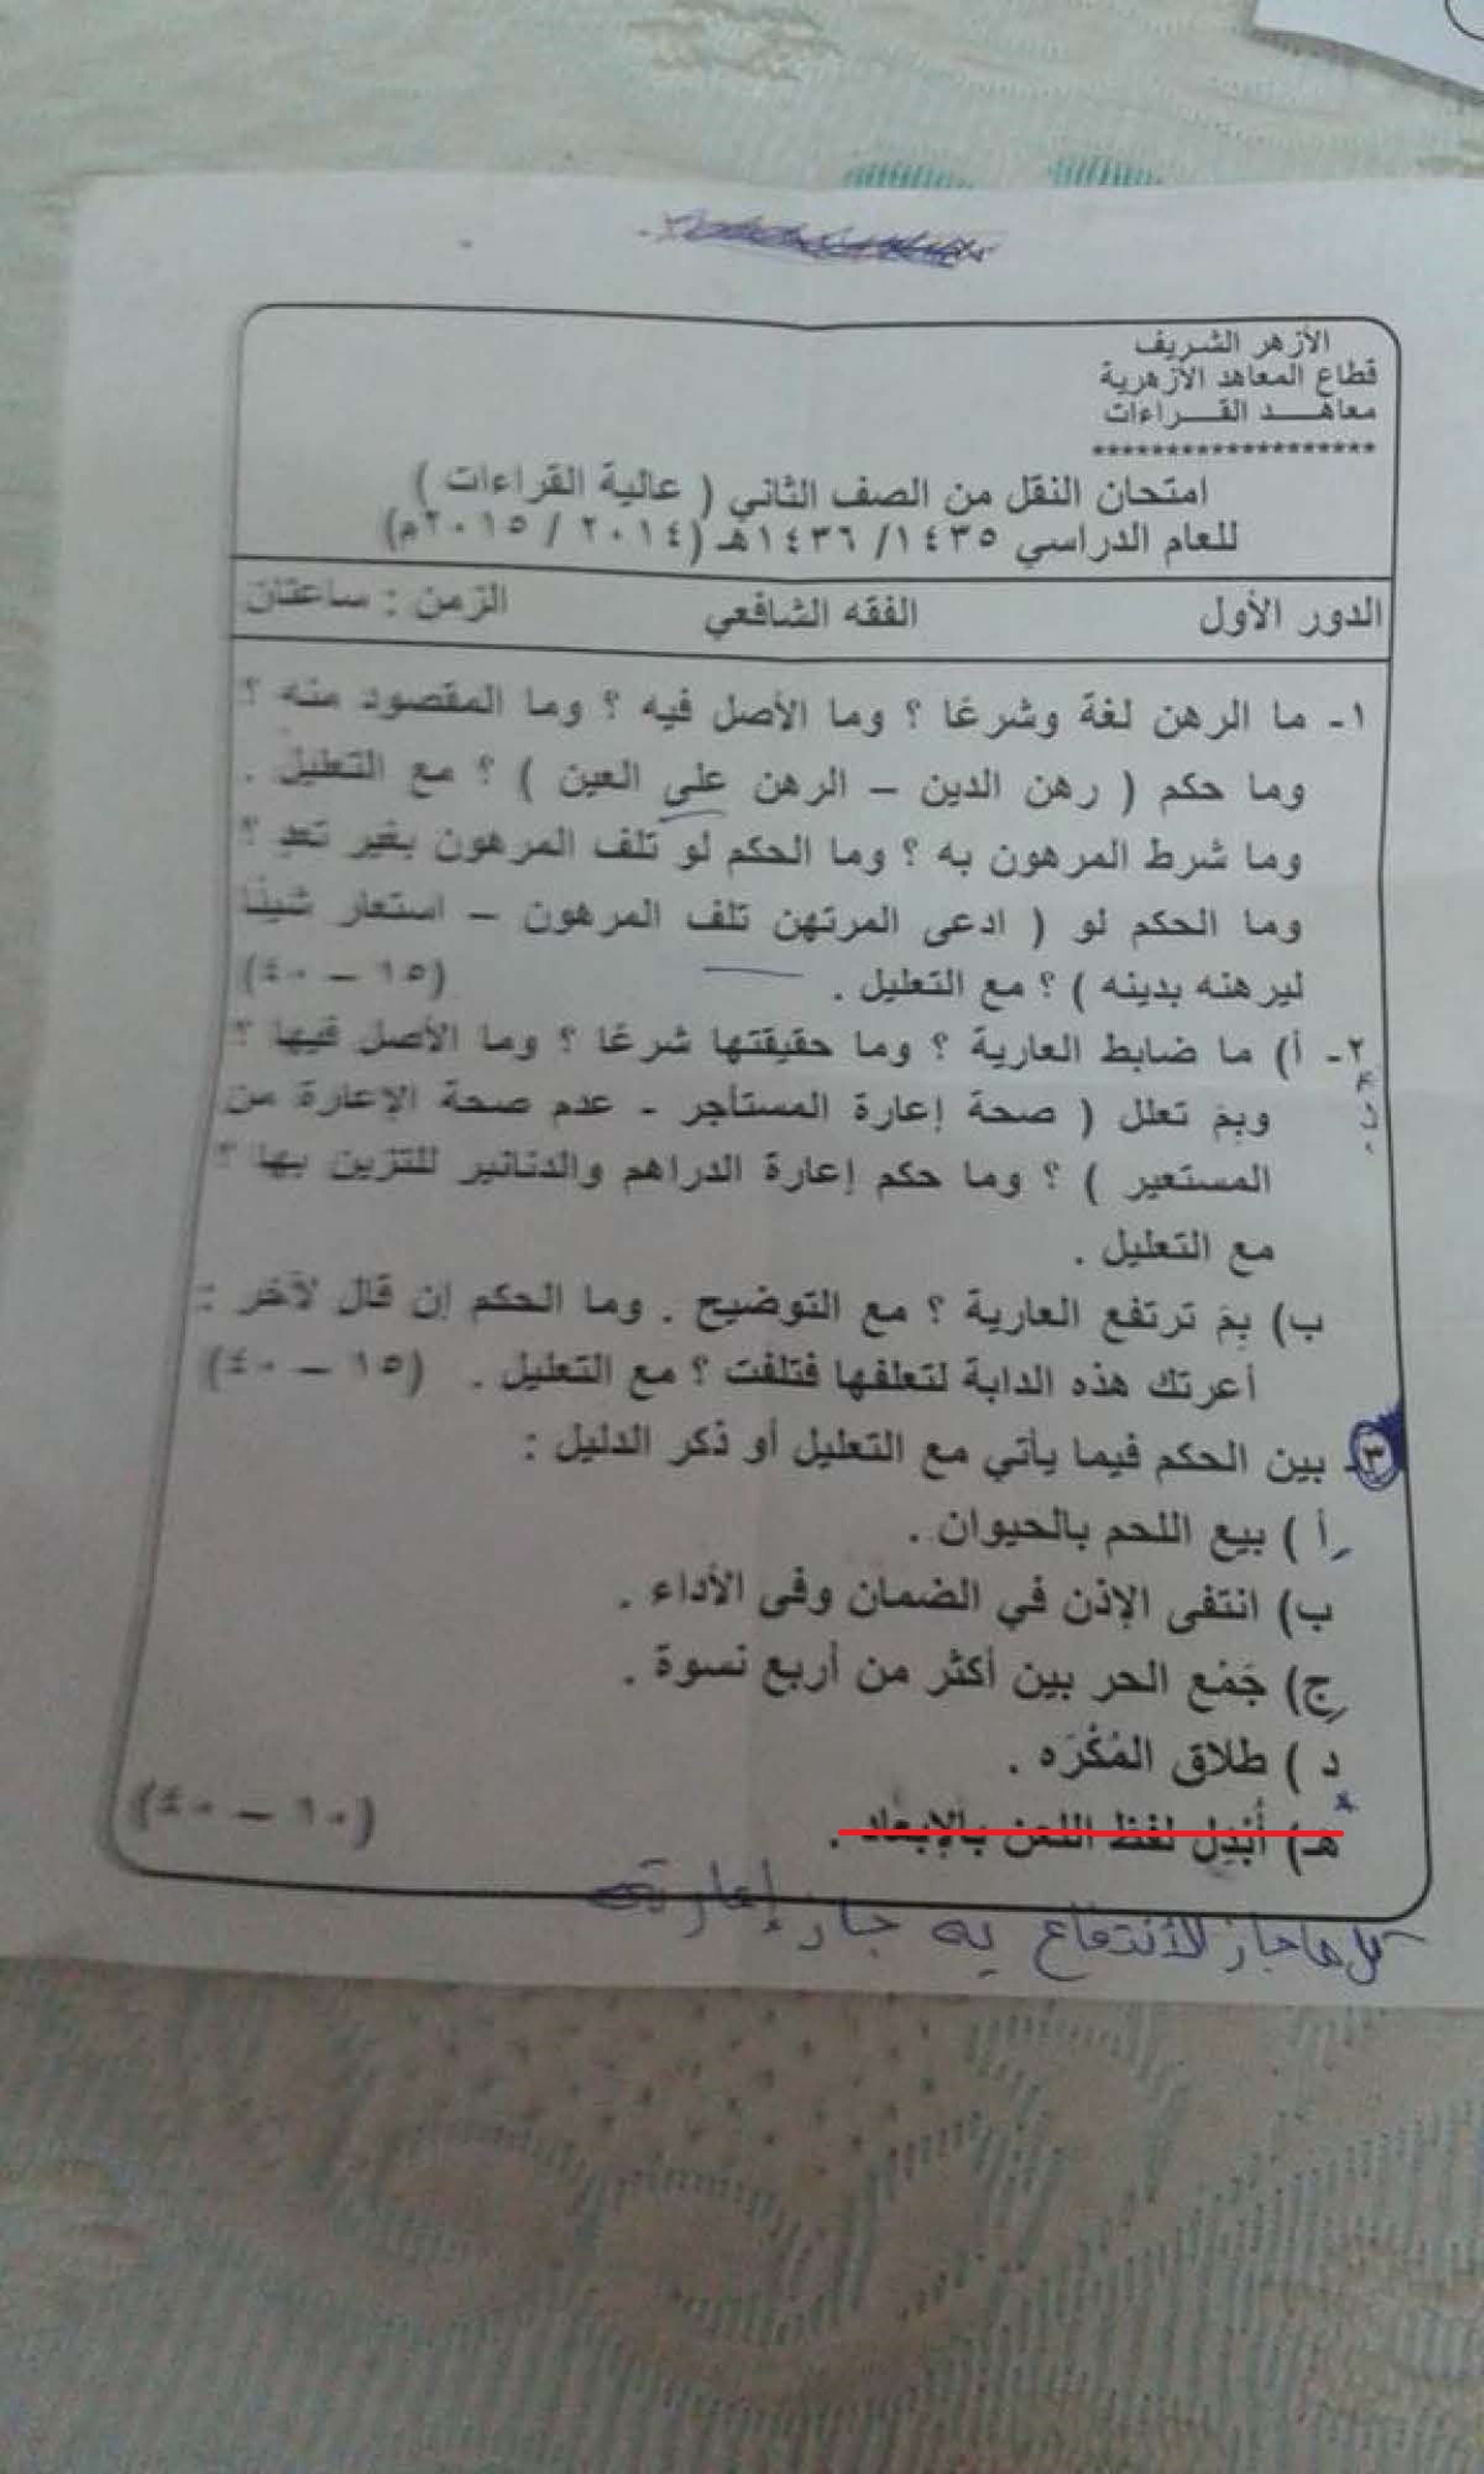 الأزهر الشريف
قطاع المعاهد الأزهرية
معاهـــد القـــراءات
********************
امتحان النقل من الصف الثاني ( عالية القراءات )
للعام الدراسي ١٤٣٥/ ١٤٣٦هـ (٢٠١٤ / ٢٠١٥م)
الدور الأول الفقه الشافعي الزمن : ساعتان
١- ما الرهن لغة وشرعًا ؟ وما الأصل فيه ؟ وما المقصود منه ؟
وما حكم ( رهن الدين – الرهن على العين ) ؟ مع التعليل .
وما شرط المرهون به ؟ وما الحكم لو تلف المرهون بغير تعدٍ ؟
وما الحكم لو ( ادعى المرتهن تلف المرهون – استعار شيئًا
ليرهنه بدينه ) ؟ مع التعليل . (١٥ – ٤٠)
٢- أ) ما ضابط العارية ؟ وما حقيقتها شرعًا ؟ وما الأصل فيها ؟
وبمَ تعلل ( صحة إعارة المستأجر - عدم صحة الإعارة من
المستعير ) ؟ وما حكم إعارة الدراهم والدنانير للتزين بها ؟
مع التعليل .
ب) بِمَ ترتفع العارية ؟ مع التوضيح . وما الحكم إن قال لآخر :
أعرتك هذه الدابة لتعلفها فتلفت ؟ مع التعليل . (١٥ – ٤٠)
٣- بين الحكم فيما يأتي مع التعليل أو ذكر الدليل :
أ ) بيع اللحم بالحيوان .
ب) انتفى الإذن في الضمان وفى الأداء .
ج) جَمْع الحر بين أكثر من أربع نسوة .
د ) طلاق المُكْرَه .
هـ) أُبْدِل لفظ اللعن بالإبعاد . (١٠ – ٤٠)
كل ما جاز الأنتفاع به جاز إعارته